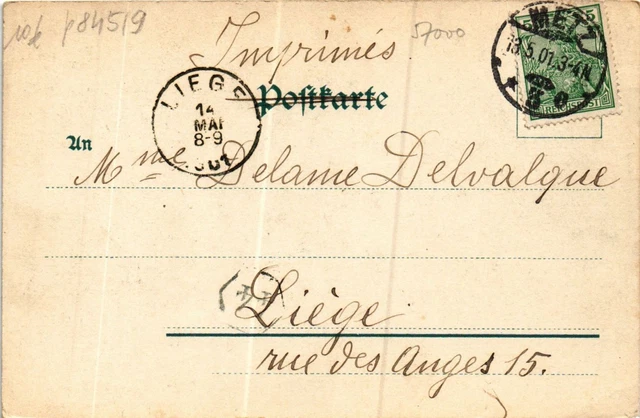 10k p84519
57000
Imprimés
METZ
13.5.01.3-4N.
5
REICHSPOST
LIEGE
14
MAI
8-9
1901
Postkarte
An
Mme Delame Delvalque
Liège
rue des Anges 15.